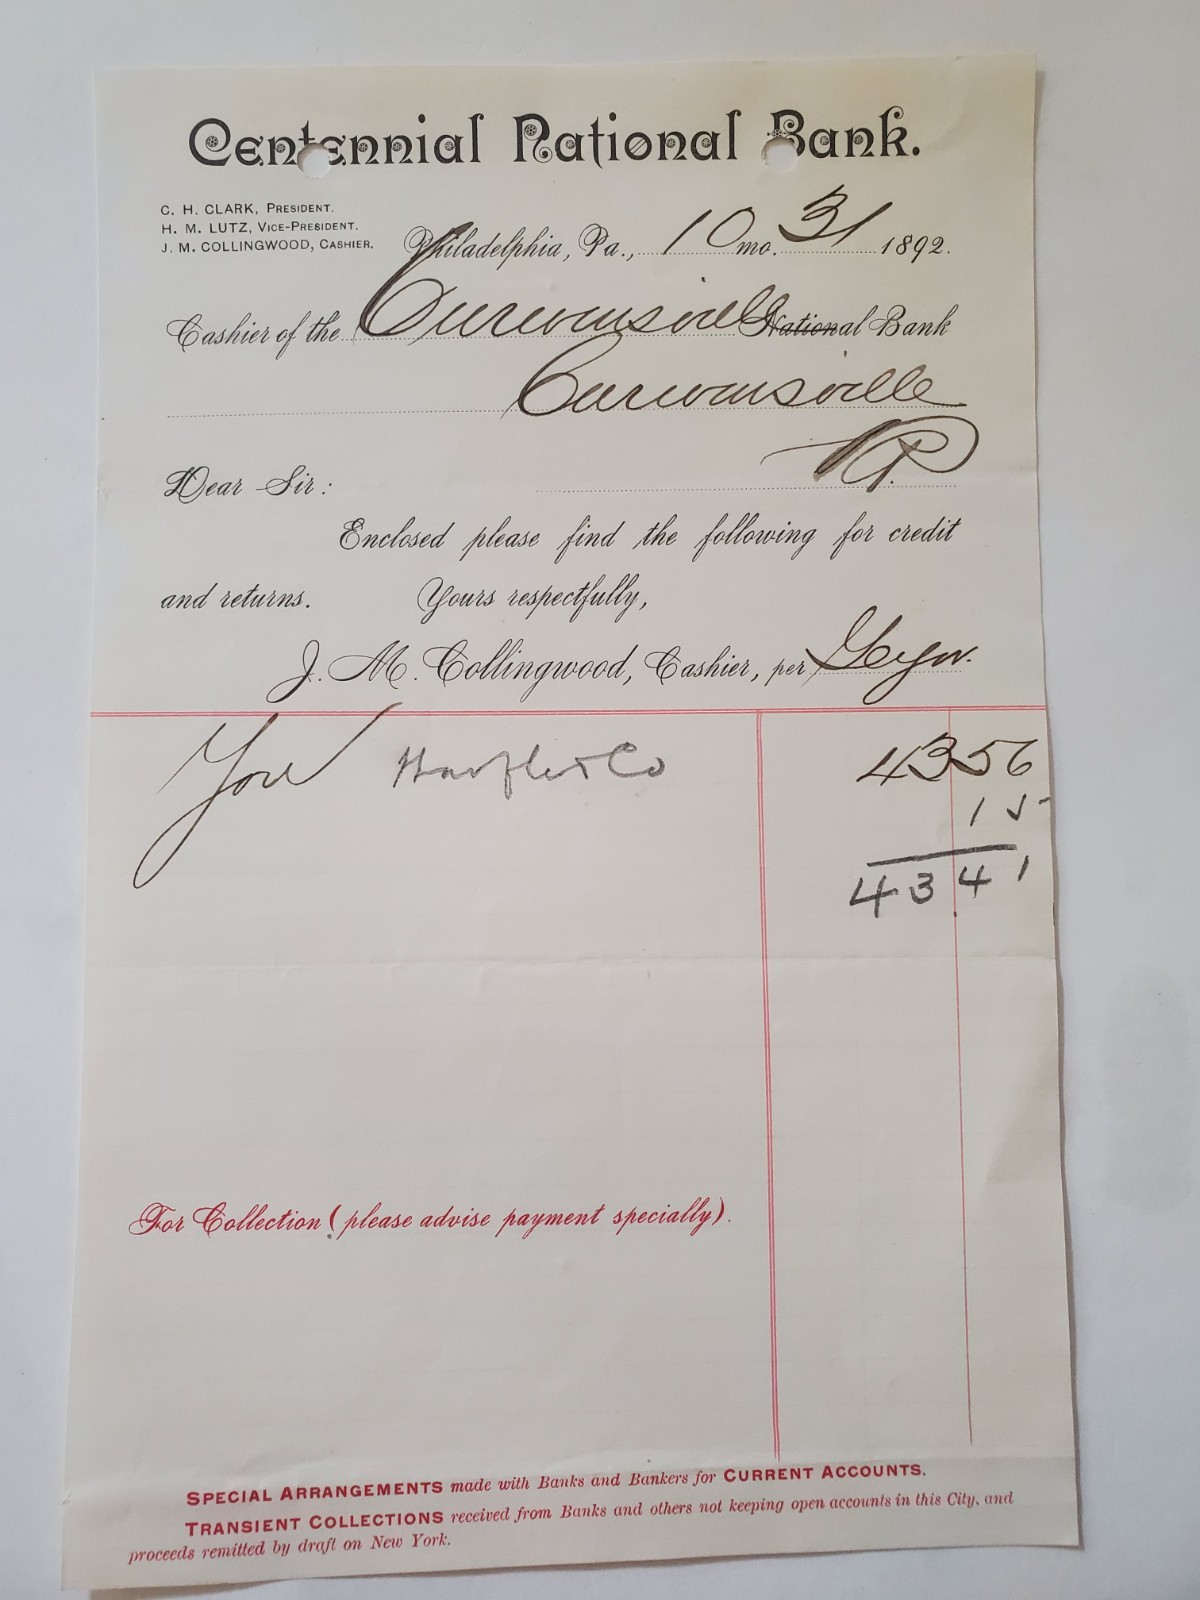 Centennial National Bank.
C. H. CLARK, PRESIDENT.
H. M. LUTZ, VICE-PRESIDENT.
J. M. COLLINGWOOD, CASHIER.
Philadelphia, Pa., 10 mo. 31 1892.
Cashier of the Curwensville National Bank
Curwensville
Pa.
Dear Sir:
Enclosed please find the following for credit
and returns. Yours respectfully,
J. M. Collingwood, Cashier, per
You & Co 43 56
15
43 41
For Collection (please advise payment specially).
SPECIAL ARRANGEMENTS made with Banks and Bankers for CURRENT ACCOUNTS.
TRANSIENT COLLECTIONS received from Banks and others not keeping open accounts in this City, and
proceeds remitted by draft on New York.